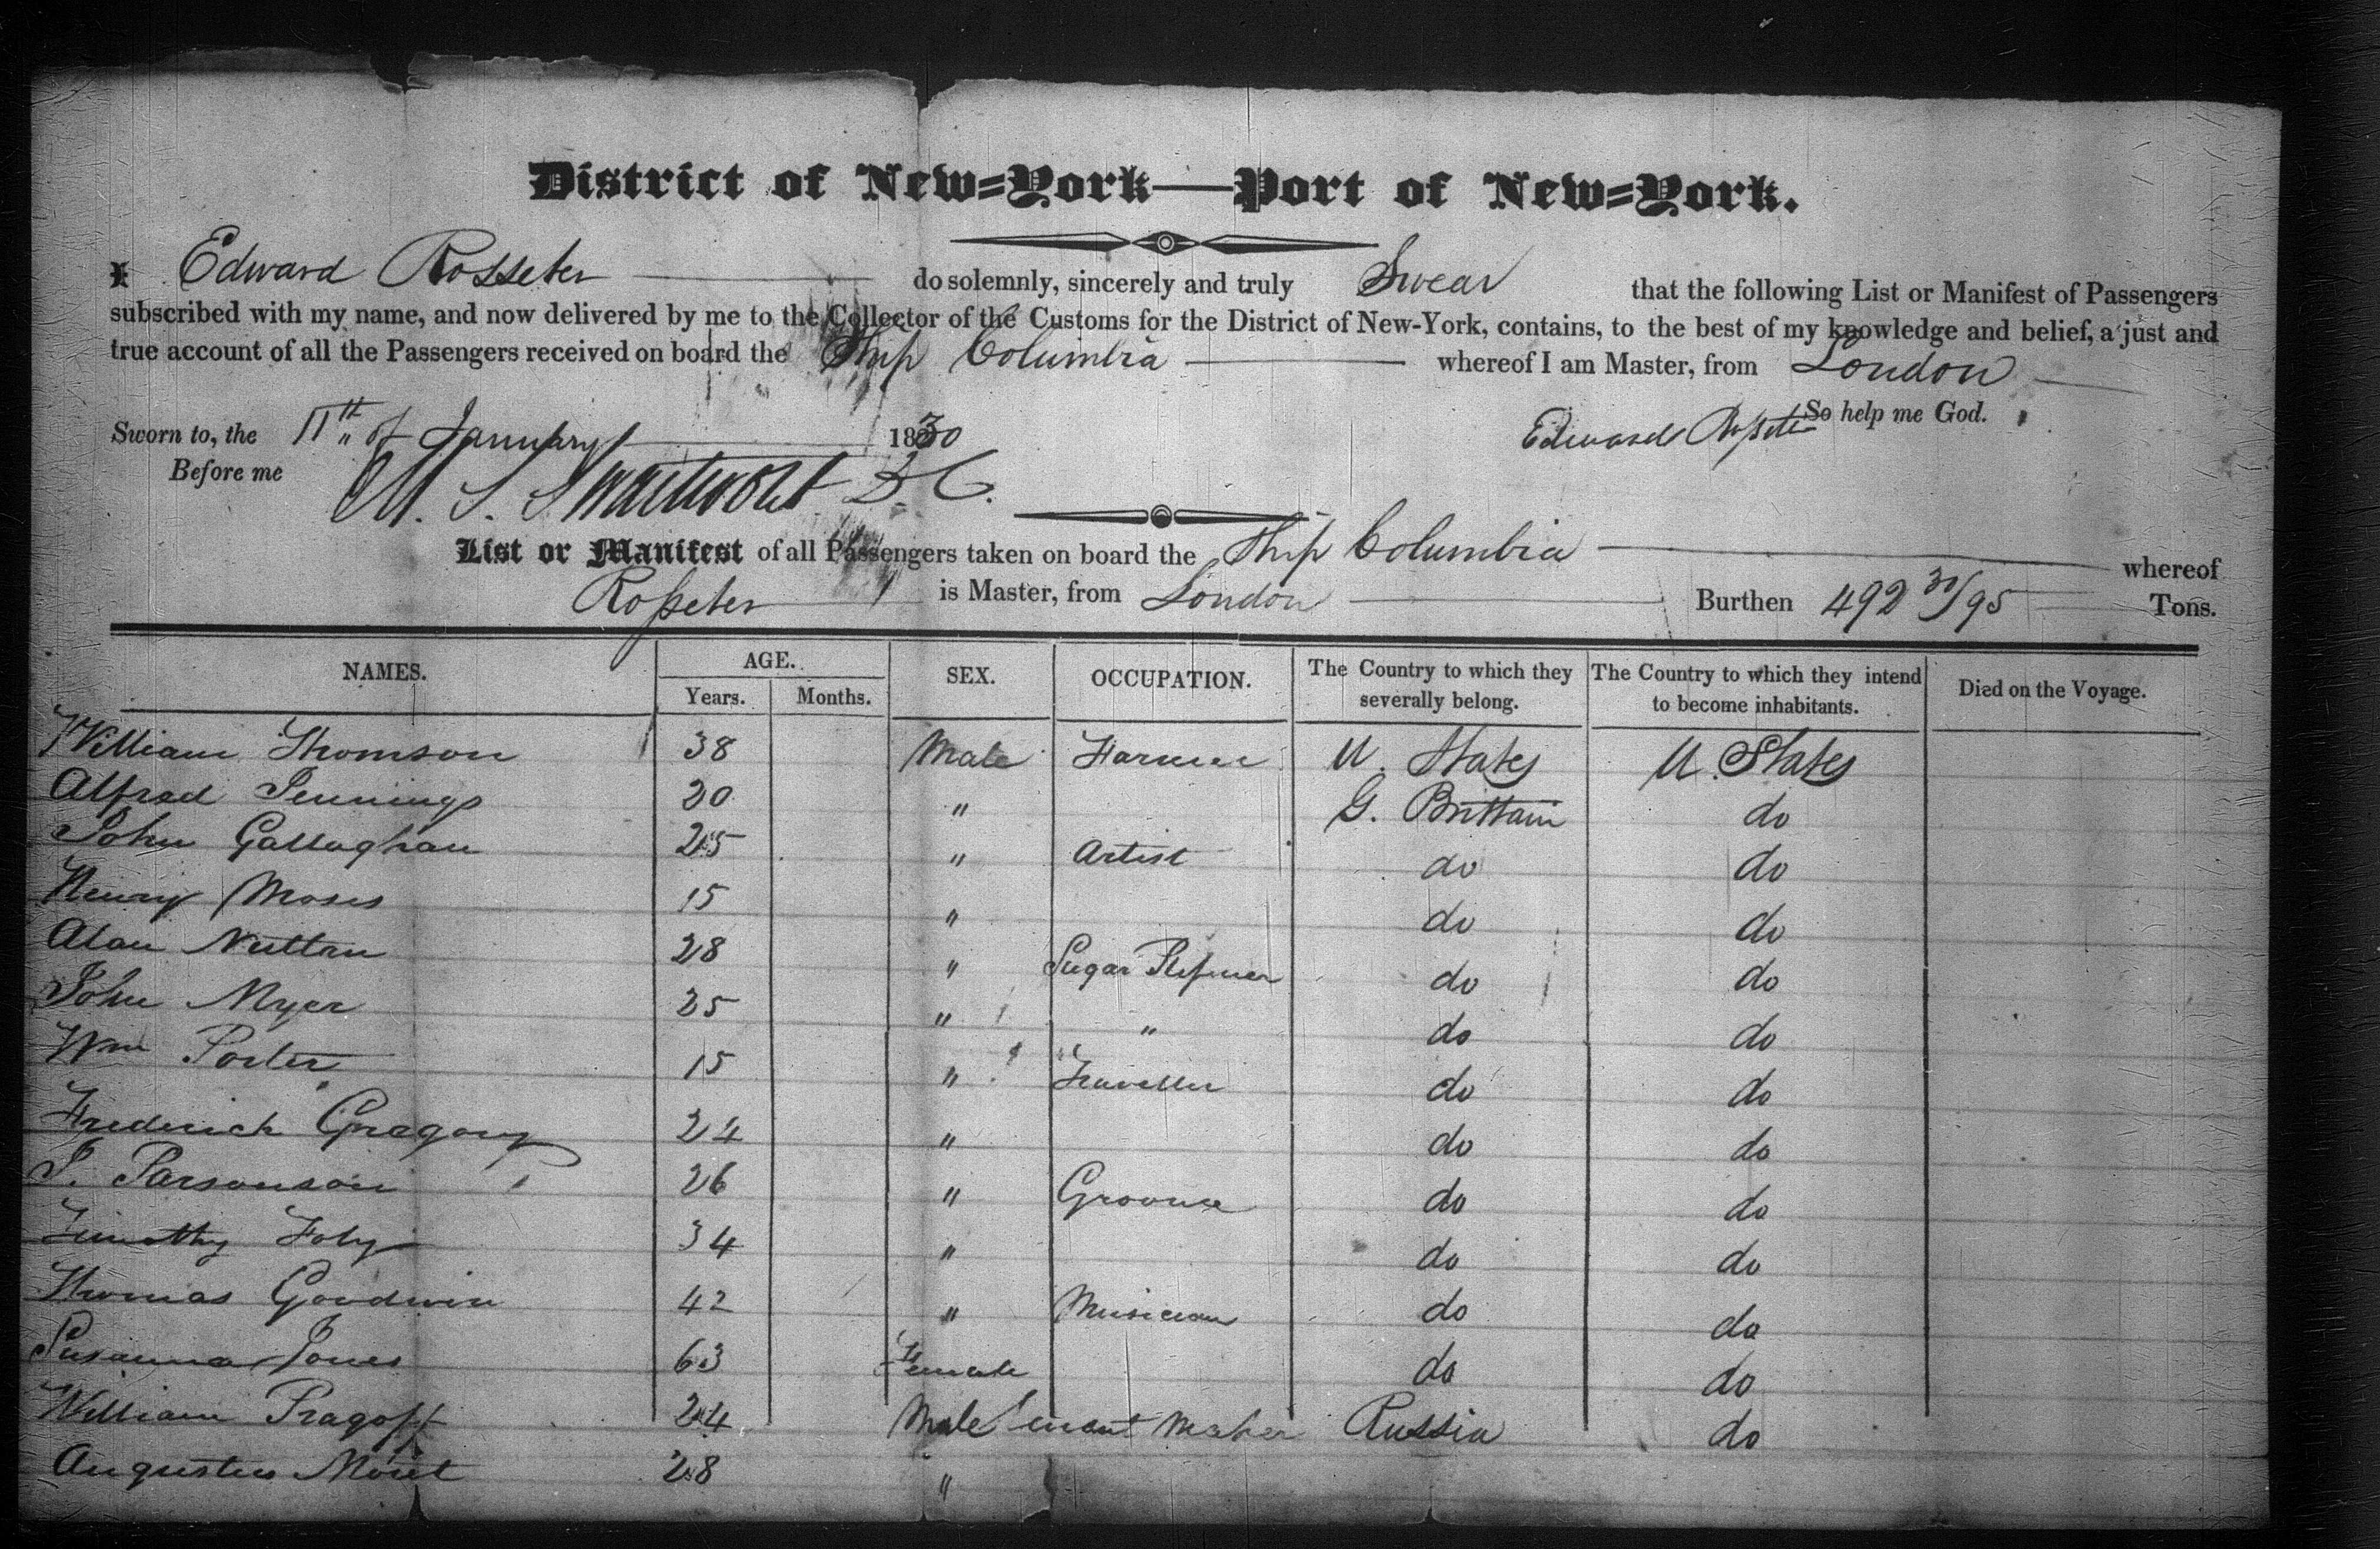 District of New=York—Port of New=York.
I Edward Rosseter do solemnly, sincerely and truly Swear that the following List or Manifest of Passengers
subscribed with my name, and now delivered by me to the Collector of the Customs for the District of New-York, contains, to the best of my knowledge and belief, a just and
true account of all the Passengers received on board the Ship Columbia whereof I am Master, from London
So help me God.
Sworn to, the 11th of January 1830 Edward Rosseter
Before me M. S. Swartwout D. C.
List or Manifest of all Passengers taken on board the Ship Columbia whereof
Rosseter is Master, from London Burthen 492 30/95 Tons.
NAMES. AGE. Years. Months. SEX. OCCUPATION. The Country to which they severally belong. The Country to which they intend to become inhabitants. Died on the Voyage.
William Thomson 38 Male Farmer U. States U. States
Alfred Jennings 20 " G. Brittain do
John Gallaghan 25 " Artist do do
Henry Moses 15 " do do
Alan 28 " Sugar Refiner do do
John Myer 25 " " do do
Wm Porter 15 " Traveller do do
Frederick Gregory 24 " do do
J. Parsonson 26 " Groome do do
Timothy Foly 34 " do do
Thomas Goodwin 42 " Musician do do
Susanna Jones 63 Female do do
William Pragoff 24 Male Maker Russia do
Augustus 28 "